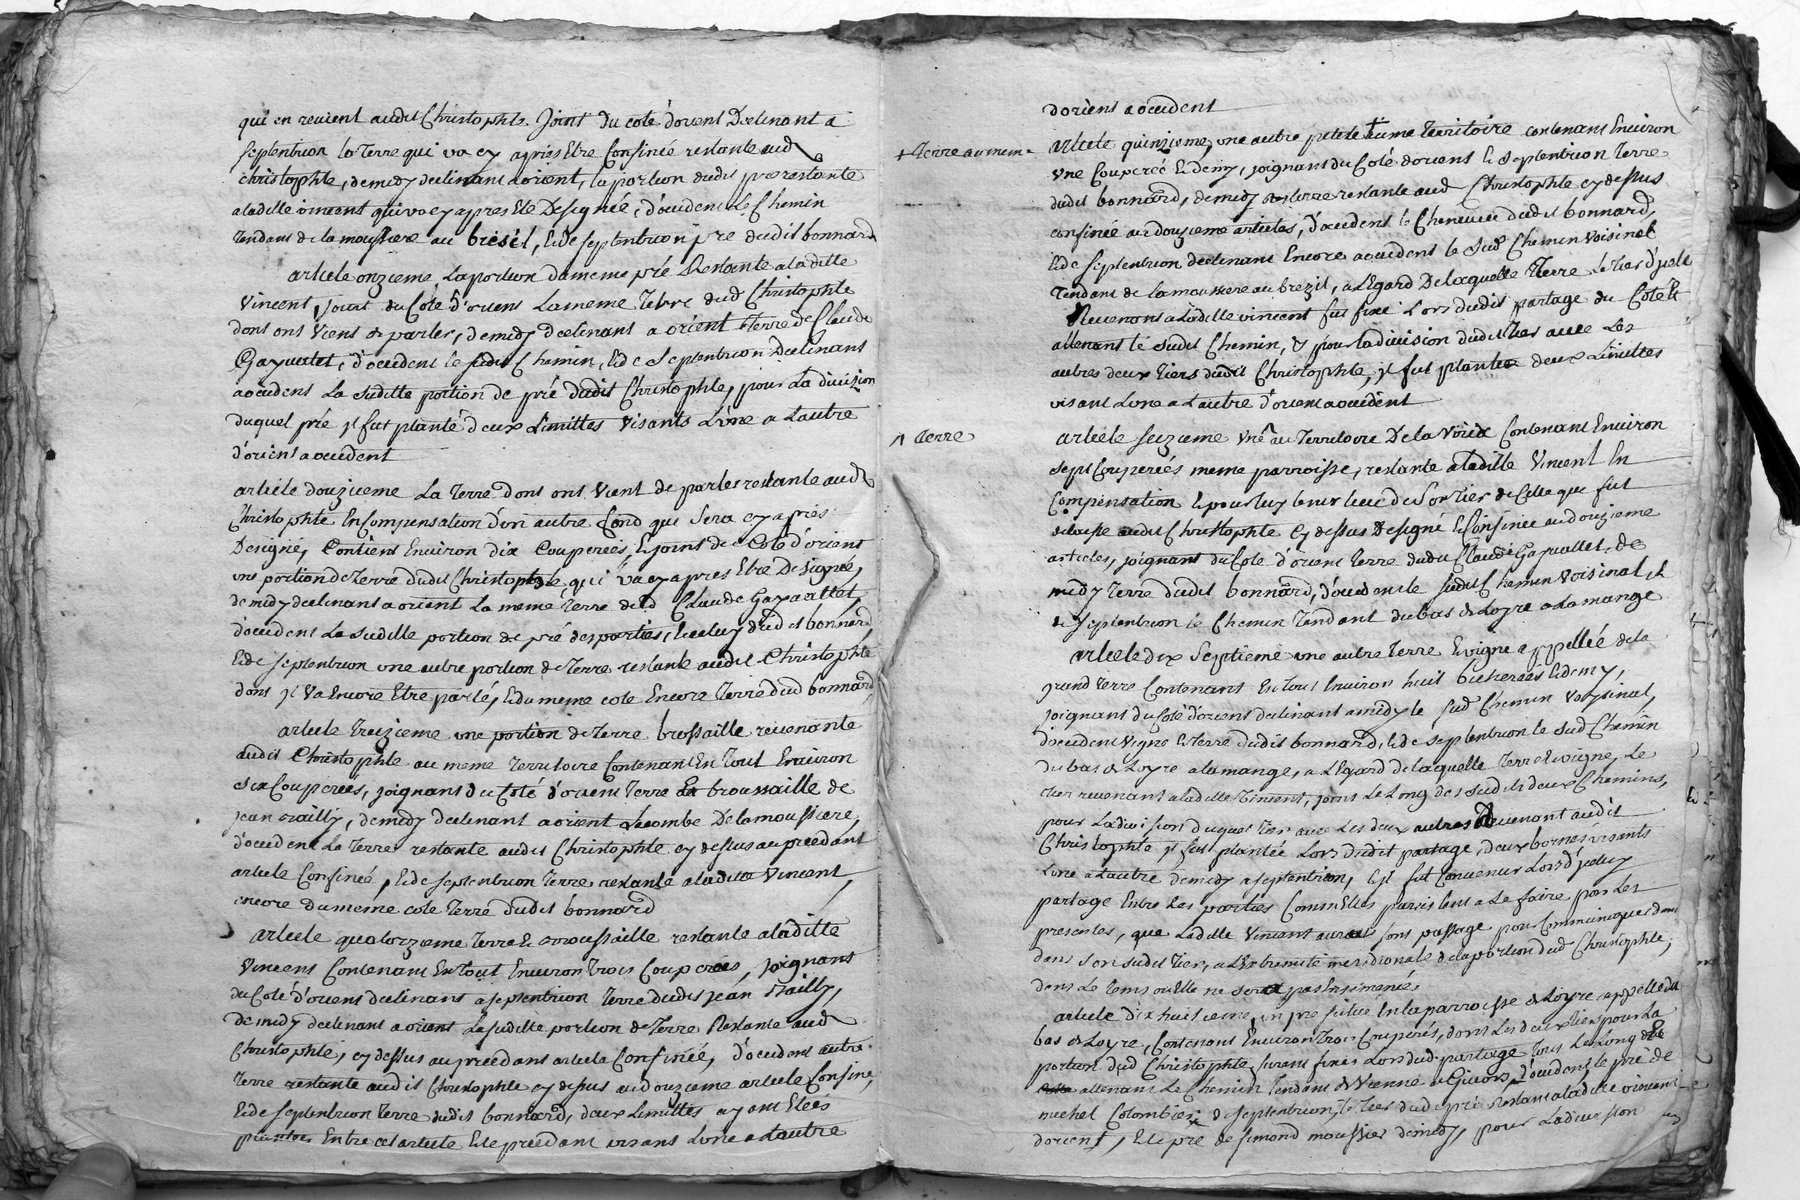 qui en revient audit Christophe. Joint du coté d'orient Declinant a
septentrion la Terre qui va cy apres Etre Confinée restante aud
christophe, de midy declinant a orient, la portion dudit pré restante
a laditte vincent qui va cy apres Etre Designée, d'occident le Chemin
Tendant de la moussiere au bresil, & de septentrion pré dudit bonnard
article onzieme, La portion du meme pré Restante a laditte
Vincent, joint du Coté d'orient La meme Terre dud Christophe
dont ont Viens de parler, de midy declinant a orient Terre de Claude
Gayvallet, d'occident le sudit Chemin, & de Septentrion Declinant
a occident La suditte portion de pré dudit Christophe, pour La division
duquel pré jl fut planté deux Limittes Visants L'une a L'autre
d'orient a occident
article douzieme La Terre dont ont Vient de parler restante aud
Christophe En Compensation d'un autre fond qui Sera cy apres
Designé, Contient Environ dix Couperées, & joint de Coté d'orient
une portion de Terre dudit Christophe, qui va cy apres Etre Designée,
de midy declinant a orient La meme Terre dud Claude Gayvallet,
d'occident La suditte portion de pré des parties, & celuy dudit bonnard,
& de septentrion une autre portion de Terre restante audit Christophe
dont jl Va Encore Etre parlé, & du meme coté Encore Terre dud bonnard,
article Treizieme une portion de Terre brossaille revenante
audit Christophe au meme Territoire Contenant En Tout Environ
Six Couperées, joignant du Coté d'orient Terre Et broussaille de
jean de midy declinant a orient La combe De la moussiere,
d'occident La Terre restante audit Christophe cy dessus au precedant
article Confinée, & de septentrion Terre restante a laditte Vincent,
encore du meme coté Terre dudit bonnard
article quatorzieme Terre & broussaille restante a laditte
Vincent Contenant En Tout Environ Trois Couperées, joignant
du Coté d'orient declinant a septentrion Terre dudit jean
de midy declinant a orient La suditte portion de Terre Restante aud
Christophe, cy dessus au precedant article Confinée, d'occident autre
Terre restante audit Christophe cy dessus au douzieme article Confiné,
& de septentrion Terre dudit bonnard, deux Limittes ayant Etées
plantées Entre cet article & le precedant visant L'une a L'autre
d'orient a occident
+ Terre au meme
article quinzieme, une autre petite Territoire contenant Environ
une Couperée & demy, joignant du Coté d'orient & septentrion Terre
dudit bonnard, de midy Terre restante aud Christophe cy dessus
confinée au douzieme article, d'occident le Chenevier dudit bonnard,
& de septentrion declinant Encore a occident le sud Chemin Voisinal
Tendant de la moussiere au brezil, a L'Egard De laquelle Terre le Tier d'jcelle
Revenant a Laditte vincent fut fixé Lors dudit partage du Coté &
attenant le sudit Chemin, & pour la division dudit Tier avec Les
autres deux Tiers dudit Christophe, jl fut planté deux Limittes
visant L'une a L'autre d'orient a occident
^ Terre
article seizieme Une ^ au Territoire De la Voüx Contenant Environ
sept Couperées meme parroisse, restante a laditte Vincent En
Compensation & pour luy tenir lieu de Son Tier de Celle qui fut
delaissé audit Christophe Cy dessus Designé & Confinée au douzieme
article, joignant du Coté d'orient Terre dudit Claude Gayvallet, de
midy Terre dudit bonnard, d'occident le sudit Chemin Voisinal, &
de septentrion le Chemin Tendant du bas de Loyre a La mange
article dix Septieme une autre Terre & vigne appellée de la
grand Terre Contenant En Tout Environ huit bicherées & demy,
joignant du Coté d'orient declinant a midy le sud Chemin Voysinal,
d'occident vigne & Terre dudit bonnard, & de septentrion le sud Chemin
du bas de Loyre a la mange, a L'Egard de laquelle Terre & vigne, Le
Tier revenant a laditte Vincent, joint Le Long des sudits deux Chemins,
pour La division duquel Tier avec Les deux autres Revenant audit
Christophe jl fut plantée Lors dudit partage, deux bornes visants
L'une a L'autre de midy a septentrion, & jl fut Convenu Lors d'jceluy
partage Entre Les parties Comm'Elles persistent a Le faire par Les
presentes, que Laditte Vincent auroit son passage pour Communiquer dans
dans son sudit Tier, a L'Extremité meridionale de la portion dud Christophe,
dans Le Tems ou Elle ne sera pas Ensemencée,
article dix huitieme, un pré situé En La parroisse de Loyre appellé du
bas de Loyre, Contenant Environ Trois Couperées, dont Les deux Tiers pour La
portion dud Christophe furent fixés Lors dud. partage Tout Le Long &
attenant Le Chemin Tendant de Vienne a Givors, d'occident, le pré de
michel Colombier, de septentrion le Tier dud pré Restant a laditte vincent
d'orient, & le pré de simond moussier de midy, pour La division